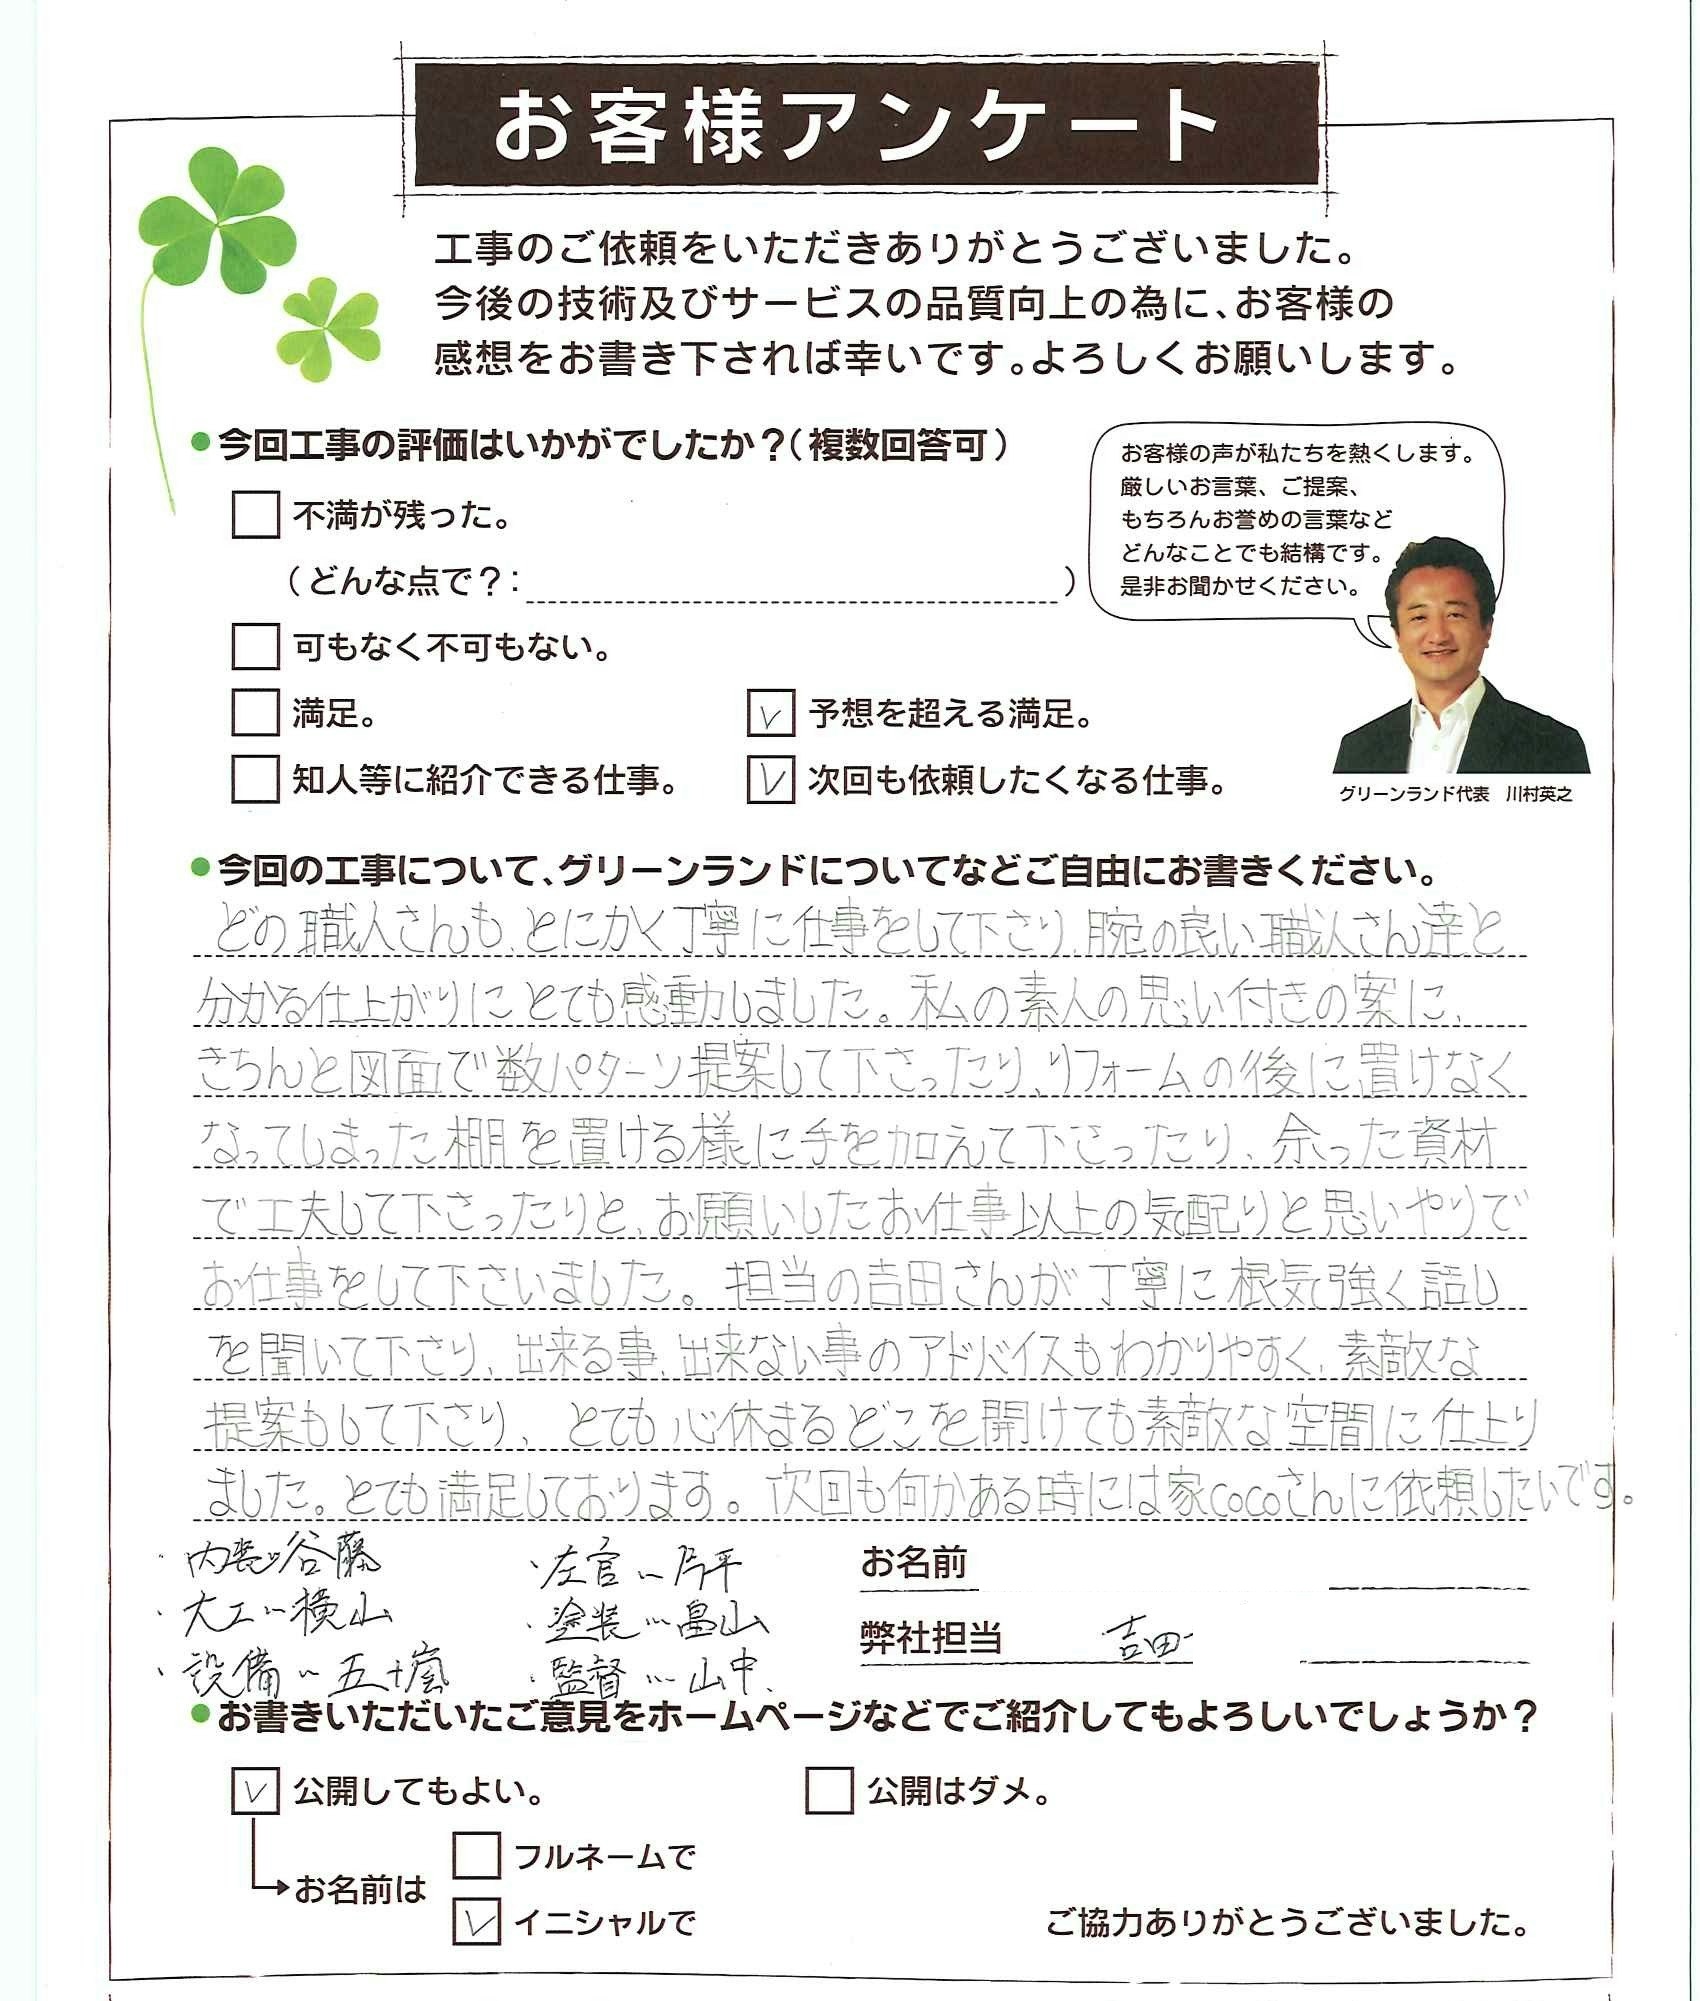 お客様アンケート
工事のご依頼をいただきありがとうございました。
今後の技術及びサービスの品質向上の為に、お客様の
感想をお書き下されば幸いです。よろしくお願いします。
●今回工事の評価はいかがでしたか？（複数回答可）
不満が残った。
（どんな点で？：　　　）
可もなく不可もない。
満足。
予想を超える満足。
知人等に紹介できる仕事。
次回も依頼したくなる仕事。
お客様の声が私たちを熱くします。
厳しいお言葉、ご提案、
もちろんお誉めの言葉など
どんなことでも結構です。
是非お聞かせください。
グリーンランド代表　川村英之
●今回の工事について、グリーンランドについてなどご自由にお書きください。
どの職人さんも、とにかく丁寧に仕事をして下さり、腕の良い職人さん達と
分かる仕上がりにとても感動しました。私の素人の思い付きの案に、
きちんと図面で数パターン提案して下さったり、リフォームの後に置けなく
なってしまった棚を置ける様に手を加えて下さったり、余った資材
で工夫して下さったりと、お願いしたお仕事以上の気配りと思いやりで
お仕事をして下さいました。担当の吉田さんが丁寧に根気強く話し
を聞いて下さり、出来る事、出来ない事のアドバイスもわかりやすく、素敵な
提案もして下さり、とても心休まるどこを開けても素敵な空間に仕上り
ました。とても満足しております。次回も何かある時には家cocoさんに依頼したいです。
・内装〃谷藤
・大工〃横山
・設備〃五十嵐
・左官〃片平
・塗装〃畠山
・監督〃山中
お名前
弊社担当　吉田
●お書きいただいたご意見をホームページなどでご紹介してもよろしいでしょうか？
公開してもよい。
公開はダメ。
お名前は
フルネームで
イニシャルで
ご協力ありがとうございました。